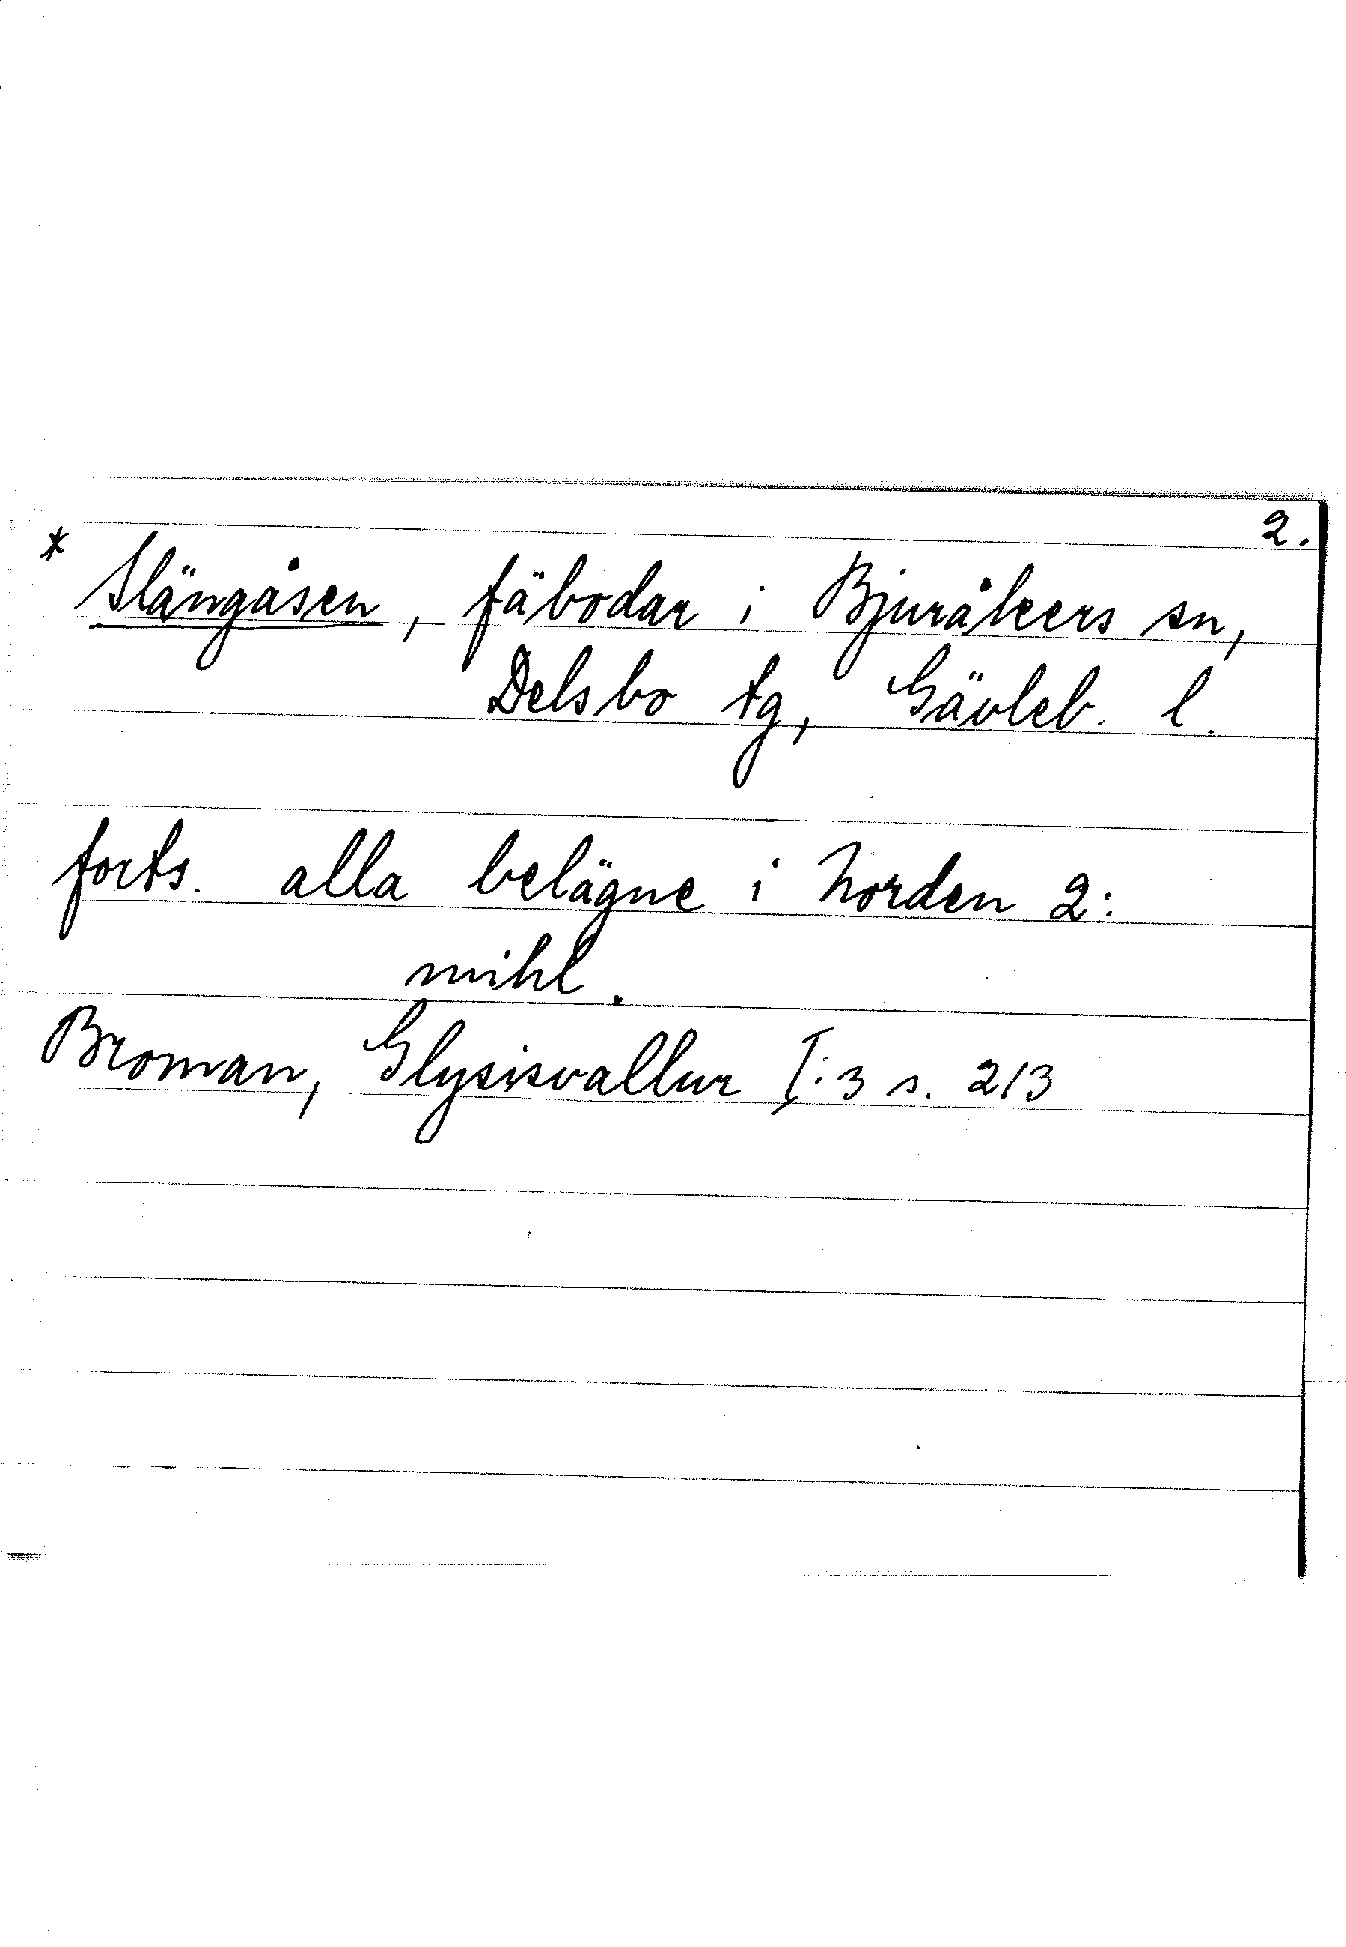 2.
* Slängåsen, fäbodar i Bjuråkers sn,
Delsbo tg, Gävleb. l.
forts. alla belägne i Norden 2:
mihl.
Broman, Glysisvallur I:3 s. 213